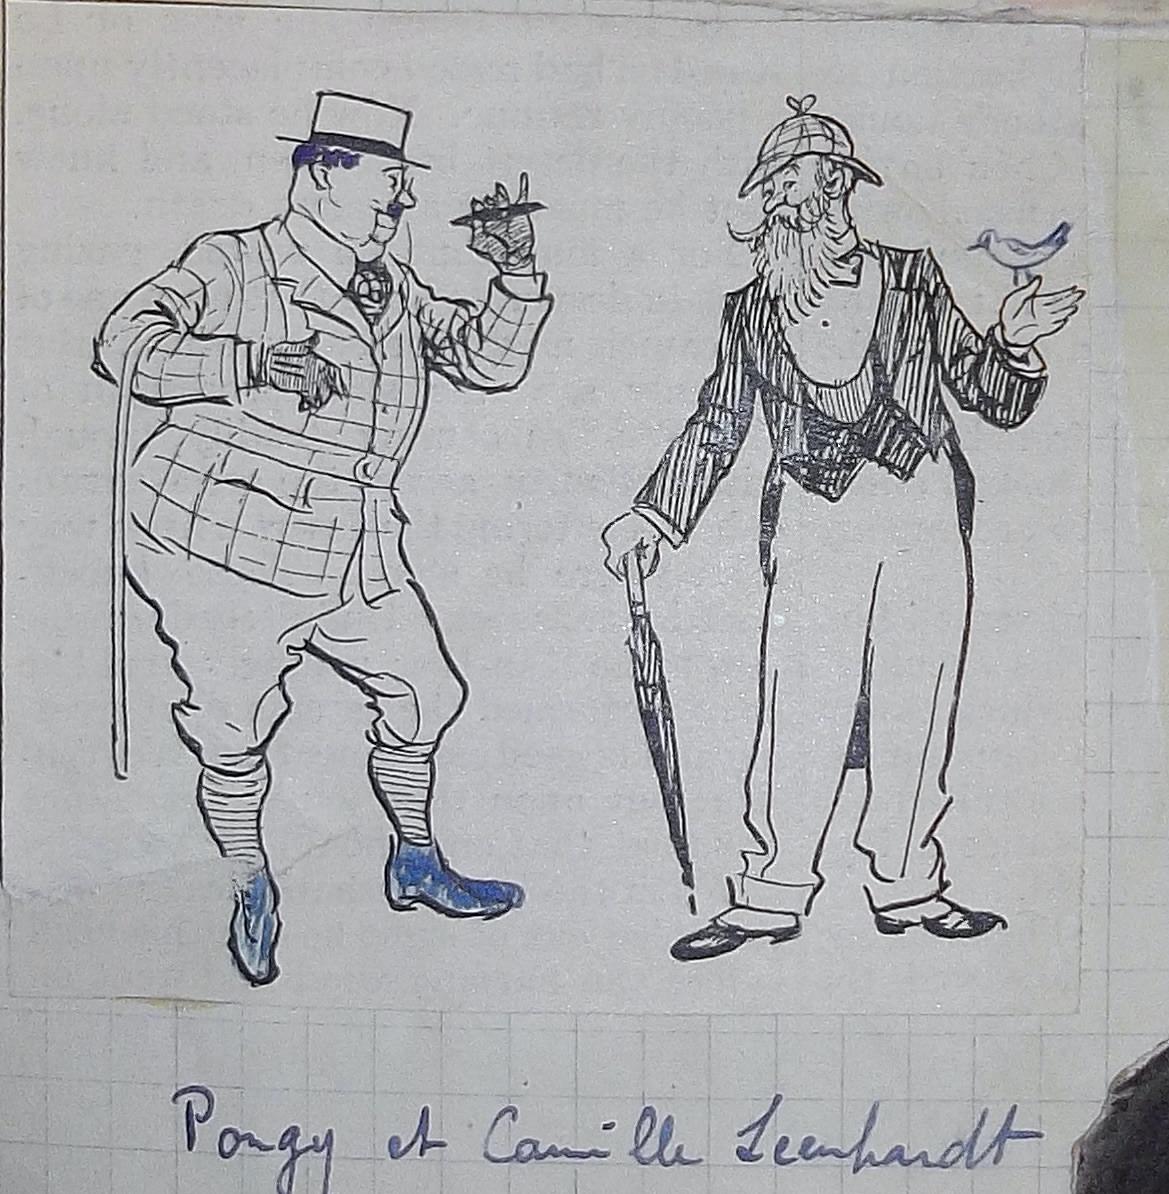 Pongy et Camille Leenhardt